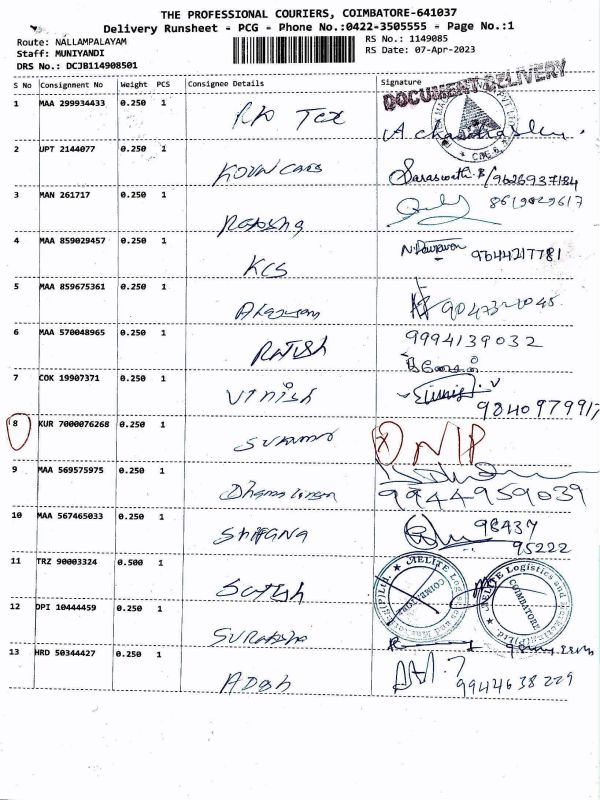 THE PROFESSIONAL COURIERS, COIMBATORE-641037
Delivery Runsheet - PCG - Phone No.:0422-3505555 - Page No.:1
Route: NALLAMPALAYAM
RS No.: 1149085
Staff: MUNIYANDI
RS Date: 07-Apr-2023
DRS No.: DCJB114908501
S No Consignment No Weight PCS Consignee Details Signature
DOCUMENT DELIVERY
1 MAA 299934433 0.250 1 RK Tex
2 UPT 2144077 0.250 1 Saraswathi.B/9626937184
3 MAN 261717 0.250 1
4 MAA 859029457 0.250 1 KCS 9644217781
5 MAA 859675361 0.250 1
6 MAA 570048965 0.250 1 Ratish 9994139032
7 COK 19907371 0.250 1 Vinish
9840979917
8 KUR 7000076268 0.250 1 NIP
9 MAA 569575975 0.250 1
9944959039
10 MAA 567465033 0.250 1 98437
95222
11 TRZ 90003324 0.500 1 Satish
MELITE Logistics and
COIMBATORE
12 DPI 10444459 0.250 1
13 HRD 50344427 0.250 1 Adesh
9944638229